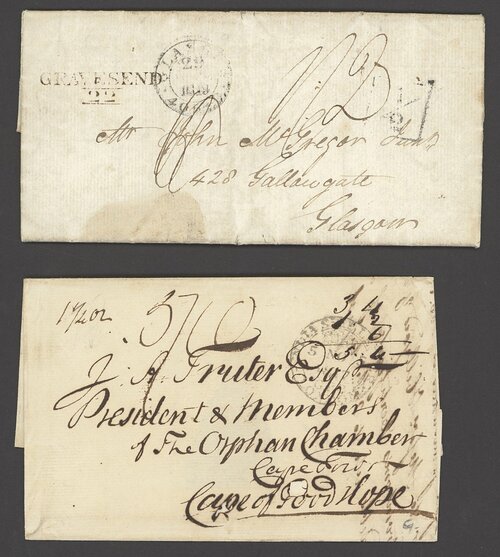 GRAVESEND
22
29
1819
Mr John McGregor Junr
428 Gallowgate
Glasgow
5/10
3 4
2
6
5.4
J. A. Truter Esqr
President & Members
of The Orphan Chamber
Cape Town
Cape of Good Hope